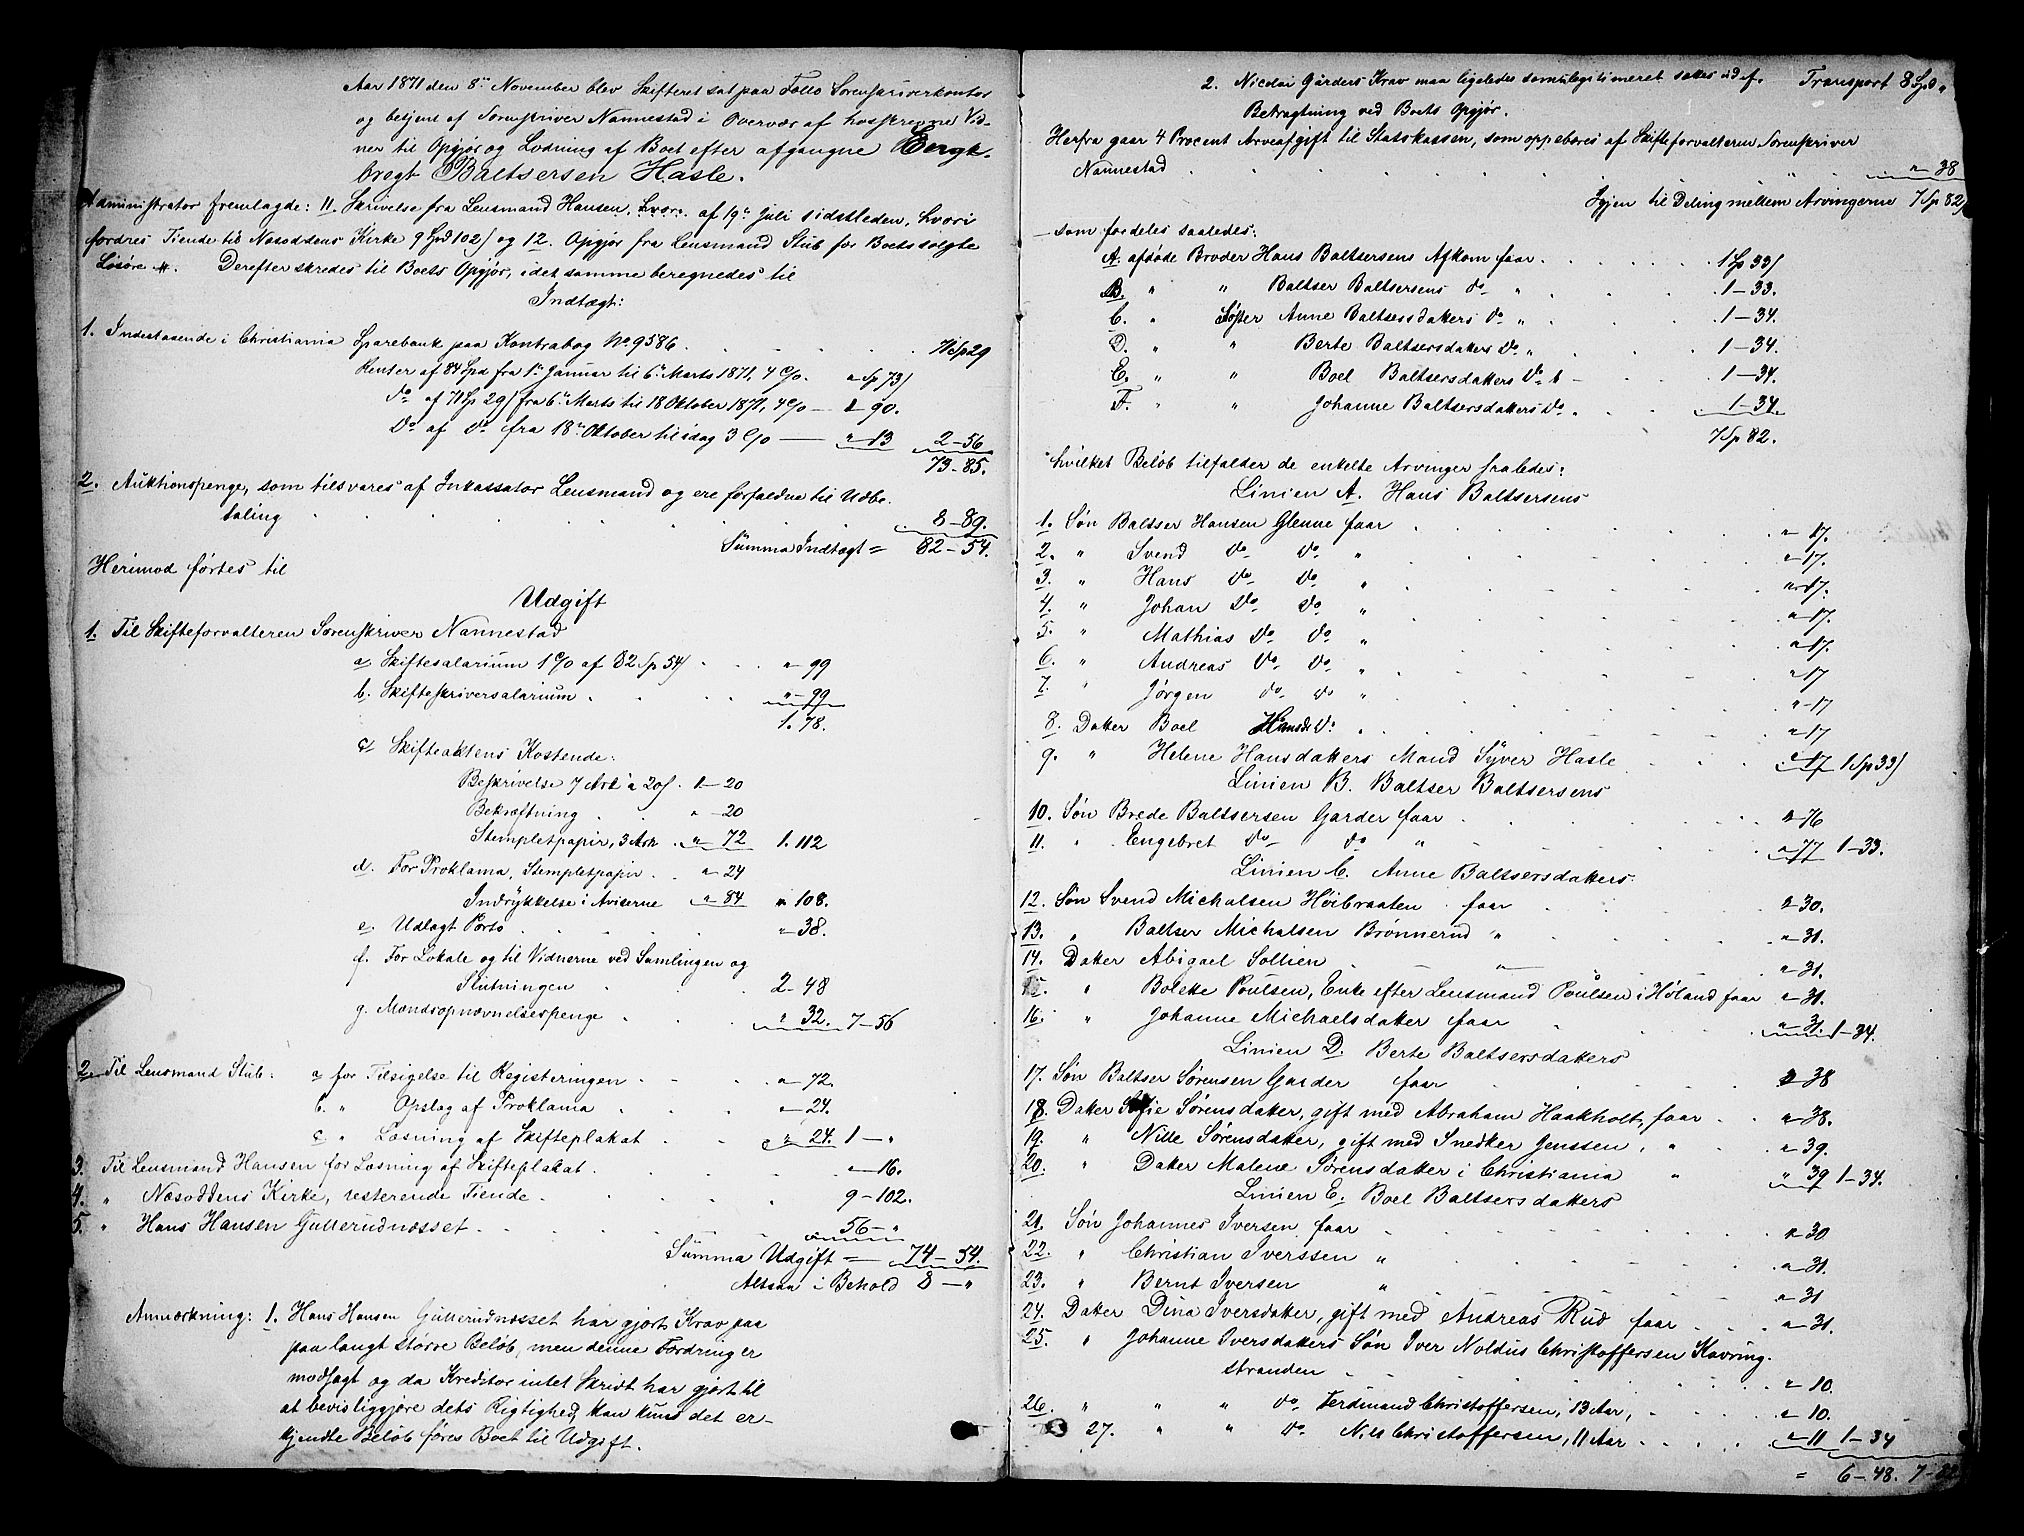 Aar 1871 den 8de November blev Skifteret sat paa Follo Sorenskriverkontor
og betjent af Sorenskriver Nannestad i Overvær af hosskrevne Vid-
ner til Opgjør og Lodning af Boet efter afgangne Enge-
bregt Baltsersen Hasle.
Administrator fremlagde: 11. Skrivelse fra Lensmand Hansen, af 19de Juli sidstleden, hvori
fordres Tiende til Nesoddens Kirke 9 Spd 102 s og 12. Opgjør fra Lensmand Stub for Boets solgte
Løsøre. Derefter skredes til Boets Opgjør, idet samme beregnedes til
Indtægt:
1. Indestaaende i Christiania Sparebank paa Kontrabog No 9586 . . . 71 Sp 29
Renter af 84 Spd fra 1ste Januar til 6te Marts 1871, 4 c/o. " Sp 73 s
do af 71 Sp 29 s fra 6te Marts til 18 Oktober 1871, 4 c/o — 1 - 90.
do af do fra 18de Oktober til idag 3 c/o — " - 13 2 - 56
73 - 85.
2. Auktionspenge, som tilsvares af Inkassator Lensmand og ere forfaldne til Udbe-
taling . . . 8 - 89.
Summa Indtægt = 82 - 54.
Herimod førtes til
Udgift
1. Til Skifteforvalteren Sorenskriver Nannestad
a. Skiftesalarium 1 c/o af 82 Sp 54 s . . . " - 99
b. Skifteskriversalarium . . . " - 99
1. 78.
c. Skifteaktens Kostende:
Beskrivelse 7 Ark a 20 s. 1 - 20
Bekræftning . " - 20
Stempletpapir, 3 Ark . " - 72 1. 112
d. For Proklama, Stempletpapir . . " - 24
Indrykkelse i Aviserne " - 84 " 108.
e. Udlagt Porto . . . " - 38.
f. For Lokale og til Vidnerne ved Samlingen og
Slutningen . . . 2 - 48
g. Mandsopnævnelsespenge . . . " 32. 7 - 56
2. Til Lensmand Stub: a for Tilsigelse til Registeringen . . . " - 72.
b. " Opslag af Proklama . . . " - 24.
c " Læsning af Skifteplakat . . . " 24. 1 - "
3. Til Lensmand Hansen for Læsning af Skifteplakat . . . " - 16.
4. " Næsoddens Kirke, resterende Tiende . . . 9 - 102.
5. " Hans Hansen Gullerudnæsset . . . 56 - "
Summa Udgift = 74 - 54.
Altsaa i Behold 8 - "
Anmærkning: 1. Hans Hansen Gullerudnæsset har gjort Krav paa
paa langt større Beløb, men denne Fordring er
modsagt og da Kreditor intet Skridt har gjort til
at bevisliggjøre dets Rigtighed, kan kuns det er-
kjendte Beløb føres Boet til Udgift.
2. Nicolai Garders Krav maa ligeledes som ulegitimeret sættes ud af Transport 8 Spd "
Betragtning ved Boets Opgjør.
Herfra gaar 4 Procent Arveafgift til Statskassen, som oppebæres af Skifteforvalteren Sorenskriver
Nannestad . . . " - 38
Igjen til Deling mellem Arvingerne 7 Sp 82 s
som fordeles saaledes:
A. afdøde Broder Hans Baltsersens Afkom faar . . . 1 Sp 33 s
B. " " Baltser Baltsersens do " . . . 1 - 33.
C. " Søster Anne Baltsersdatters do " . . . 1 - 34.
D. " " Berte Baltsersdatters do " 1 - 34.
E. " " Boel Baltsersdatters do " . . . 1 - 34.
F. " " Johanne Baltsersdatters do " . . . 1 - 34.
7 Sp 82.
hvilket Beløb tilfalder de enkelte Arvinger saaledes:
Linien A. Hans Baltsersens
1. Søn Baltser Hansen Glenne faar . . . " - 17.
2. " Svend do do " . . . " - 17.
3. " Hans do do " . . . " - 17.
4. " Johan do do " . . . " - 17.
5. " Mathias do do " . . . " - 17.
6. " Andreas do do " . . . " - 17
7. " Jørgen do do " . . . " - 17
8. Datter Boel Hansd do " . . . " - 17
9. " Helene Hansdatters Mand Syver Hasle . . . " - 17 1 Sp 33 s
Linien B. Baltser Baltsersens
10. Søn Brede Baltsersen Garder faar . . . " - 76
11. " Engebret do do " . . . " - 77 1 - 33.
Linien C. Anne Baltsersdatters.
12. Søn Svend Michalsen Høibraaten faar . . . " - 30.
13. " Baltser Michalsen Brønnerud " . . . " - 31.
14. Datter Abigael Sollien " . . . " - 31.
15. " Bolette Poulsen, Enke efter Lensmand Poulsen i Høland faar " - 31.
16. " Johanne Michaelsdatter faar . . . " - 31. 1 - 34.
Linien D. Berte Baltsersdatters
17. Søn Baltser Sørensen Garder faar . . . " - 38
18. Datter Sørensdatter, gift med Abraham Haakholt, faar . . " - 38.
19. " Nille Sørensdatter, gift med Snedker Jenssen, " . " - 39.
20. " Datter Malene Sørensdatter i Christiania " " 39 1 - 34.
Linien E. Boel Baltsersdatters
21. Søn Johannes Iversen faar . . . " - 30
22. " Christian Iverssen " . . . " - 31.
23. " Bernt Iversen " . . . " - 31
24. Datter Dina Iversdatter, gift med Andreas Rud faar . . . " - 31.
25. " Johanne Iversdatters Søn Iver Noldus Christoffersen Kavring-
stranden . . . " - 10.
26. " " " do Ferdinand Christoffersen, 13 Aar, . . . " - 10.
27. " " do Nils Christoffersen, 11 Aar . . . " - 11 1 - 34
= 6 - 48. 7 - 82